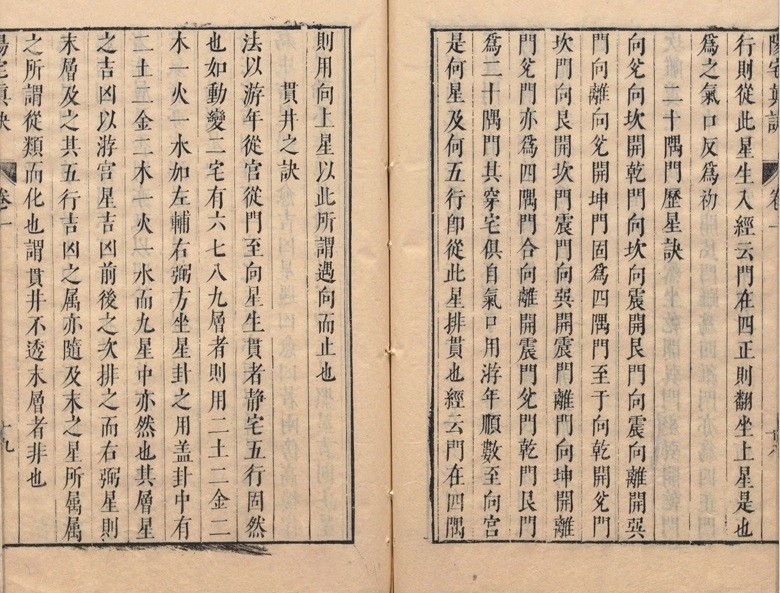 陽宅真訣 卷一 十八
行則從此星生入經云門在四正則翻坐上星是也
爲之氣口反爲初
二十隅門歷星訣
向兊向坎開乾門向坎向震開艮門向震向離開巽
門向離向兊開坤門固爲四隅門至于向乾開兊門
坎門向艮開坎門震門向巽開震門離門向坤開離
門兊門亦爲四隅門合向離開震門兊門乾門艮門
爲二十隅門其穿宅俱自氣口用游年順數至向宮
是何星及何五行即從此星排貫也經云門在四隅
則用向上星以此所謂遇向而止也
貫井之訣
法以游年從宮從門至向星生貫者静宅五行固然
也如動變二宅有六七八九層者則用二土二金二
木一火一水如左輔右弼方坐星卦之用盖卦中有
二土二金二木一火一水而九星中亦然也其層星
之吉凶以游宮星吉凶前後之次排之而右弼星則
末層及之其五行吉凶之属亦隨及末之星所属属
之所謂從類而化也謂貫井不透末層者非也
陽宅真訣 卷一 十九